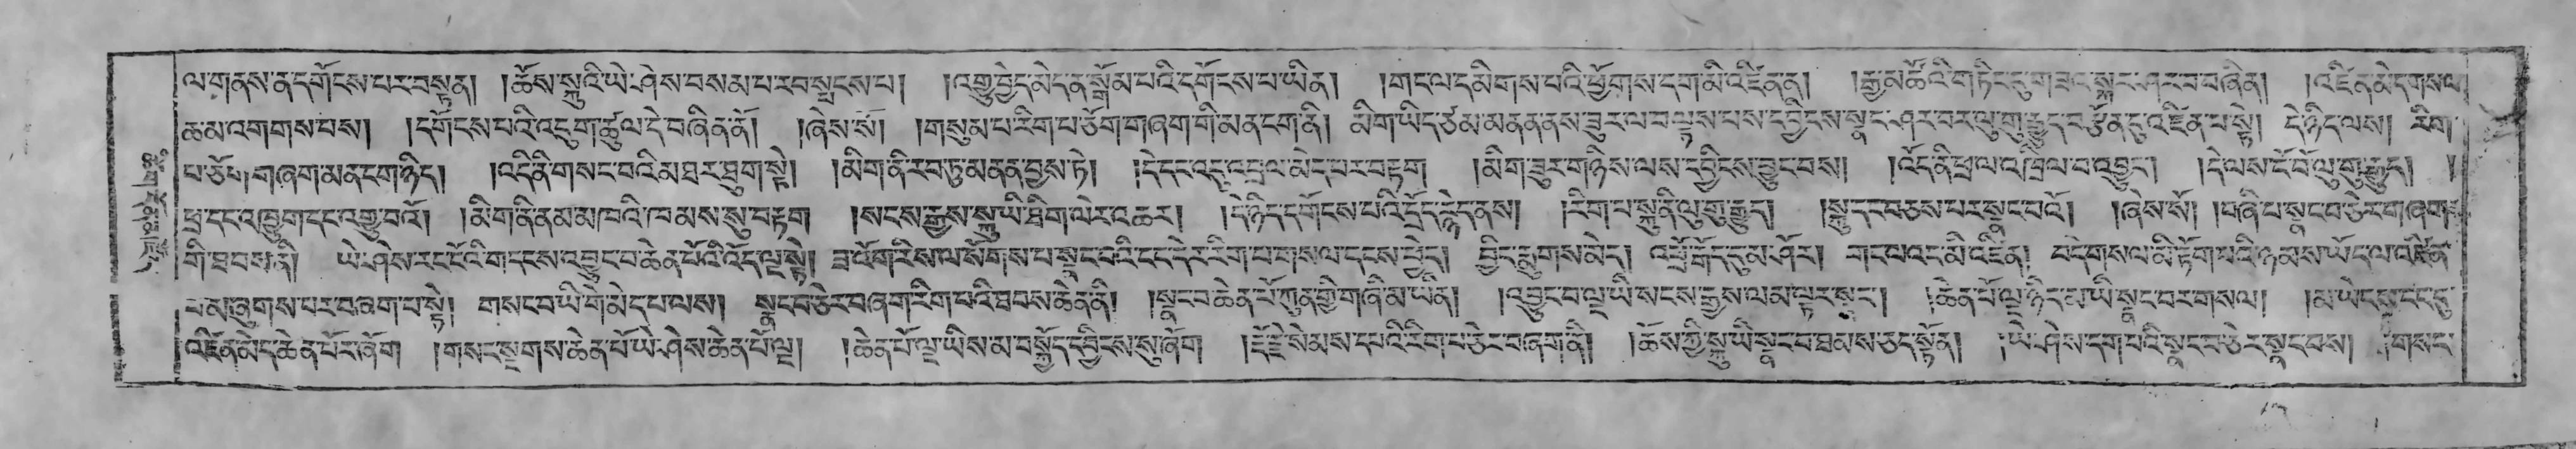 ལ་གནས་ན་དགོངས་པར་བསྟན། །ཆོས་སྐུའི་ཡེ་ཤེས་བསམ་པ་རབ་སྦྱངས་པ། །འགྱུ་བྱེད་མེད་ན་སྒོམ་པའི་དགོངས་པ་ཡིན། །གང་ལ་དམིགས་པའི་ཕྱོགས་དག་མི་འཛིན་ན། །རྒྱ་མཚོའི་གཏིང་དུ་གཟའ་སྐར་ཤར་བ་བཞིན། །འཛིན་མེད་གསལ་
ཆམ་འགགས་པས། །དགོངས་པའི་འདུག་ཚུལ་དེ་བཞིན་ནོ། །ཞེས་སོ། །གསུམ་པ་རིག་པ་ཅོག་གཞག་གི་མན་ངག་ནི། མིག་ཡིད་ཙམ་མནན་ནས་ཟུར་ལ་བལྟས་པས་དབྱིངས་སྣང་ཤར་བར་ལུ་གུ་རྒྱུད་བཙོན་དུ་འཛིན་པ་སྟེ། དེ་ཉིད་ལས། རིག་
པ་ཅོག་གཞག་མན་ངག་ཉིད། །འདི་ནི་གསང་བའི་མཐར་ཐུག་སྟེ། །མིག་ནི་རབ་ཏུ་མནན་བྱས་ཏེ། །དེ་དང་འདུ་འབྲལ་མེད་པར་བརྟག །མིག་ཟུར་གཉིས་ལས་དབྱིངས་བྱུང་བས། །འོད་ནི་ཕྲལ་འཕྲིལ་བ་འབྱུང་། །དེ་ལས་ངོ་བོ་ལུ་གུ་རྒྱུད། །
ཕྲ་དང་འཁྱུག་དང་འགྱུ་བའོ། །མིག་ནི་ནམ་མཁའི་ཁམས་སུ་བརྟག །སངས་རྒྱས་སྐུ་ཡི་ཐིག་ལེར་འཆར། །དེ་ཉིད་དགོངས་པའི་དྲོད་རྙེད་ནས། །རིག་པ་སྐུ་ནི་ལུ་གུ་རྒྱུད། །སྐུ་དང་བཅས་པར་སྣང་བའོ། །ཞེས་སོ། །བཞི་པ་སྣང་བ་ཅེར་གཞག་
གི་ཐབས་ནི། ཡེ་ཤེས་རང་ངོའི་གདངས་འབྱུང་བ་ཆེན་པོའི་འོད་ལྔ་སྟེ། ཟ་པོག་རིས་ལ་སོགས་པ་སྣང་བའི་ངང་དེར་རིག་པ་གསལ་དྭངས་ཕྱེད། བྱིང་རྨུགས་མེད། འཕྲོ་རྒོད་དུ་མ་ཤོར། གང་ལའང་མི་འཛིན། བདེ་གསལ་མི་རྟོག་པའི་ཉམས་ཡོད་ལ་འཛིན་
པ་མ་ཞུགས་པར་བཞག་པ་སྟེ། གསང་བ་ཡི་གེ་མེད་པ་ལས། སྣང་བ་ཅེར་བཞག་རིག་པའི་ཐབས་ཆེན་ནི། །སྣང་བ་ཆེན་པོ་ཀུན་གྱི་གཞི་མ་ཡིན། །འབྱུང་བ་ལྔ་ཡི་སངས་རྒྱས་ལམ་ལྟར་སྣང་། །ཆེན་པོ་ལྔ་ཉིད་མ་ཡི་སྣང་བར་གསལ། །མ་ཡེངས་ངང་དུ་
འཛིན་མེད་ཆེན་པོར་ཞོག །གསང་སྔགས་ཆེན་པོ་ཡེ་ཤེས་ཆེན་པོ་ལྔ། །ཆེན་པོ་ལྔ་ཡིས་མ་བསྐྱོད་དབྱིངས་སུ་ཞོག །རྡོ་རྗེ་སེམས་དཔའི་རིག་པ་ཅེར་བཞག་ནི། །ཆོས་ཀྱི་སྐུ་ཡི་སྣང་བ་ཐམས་ཅད་སྟོན། །ཡེ་ཤེས་དག་པའི་སྣང་བ་ཅེར་སྣང་བས། །གསང་